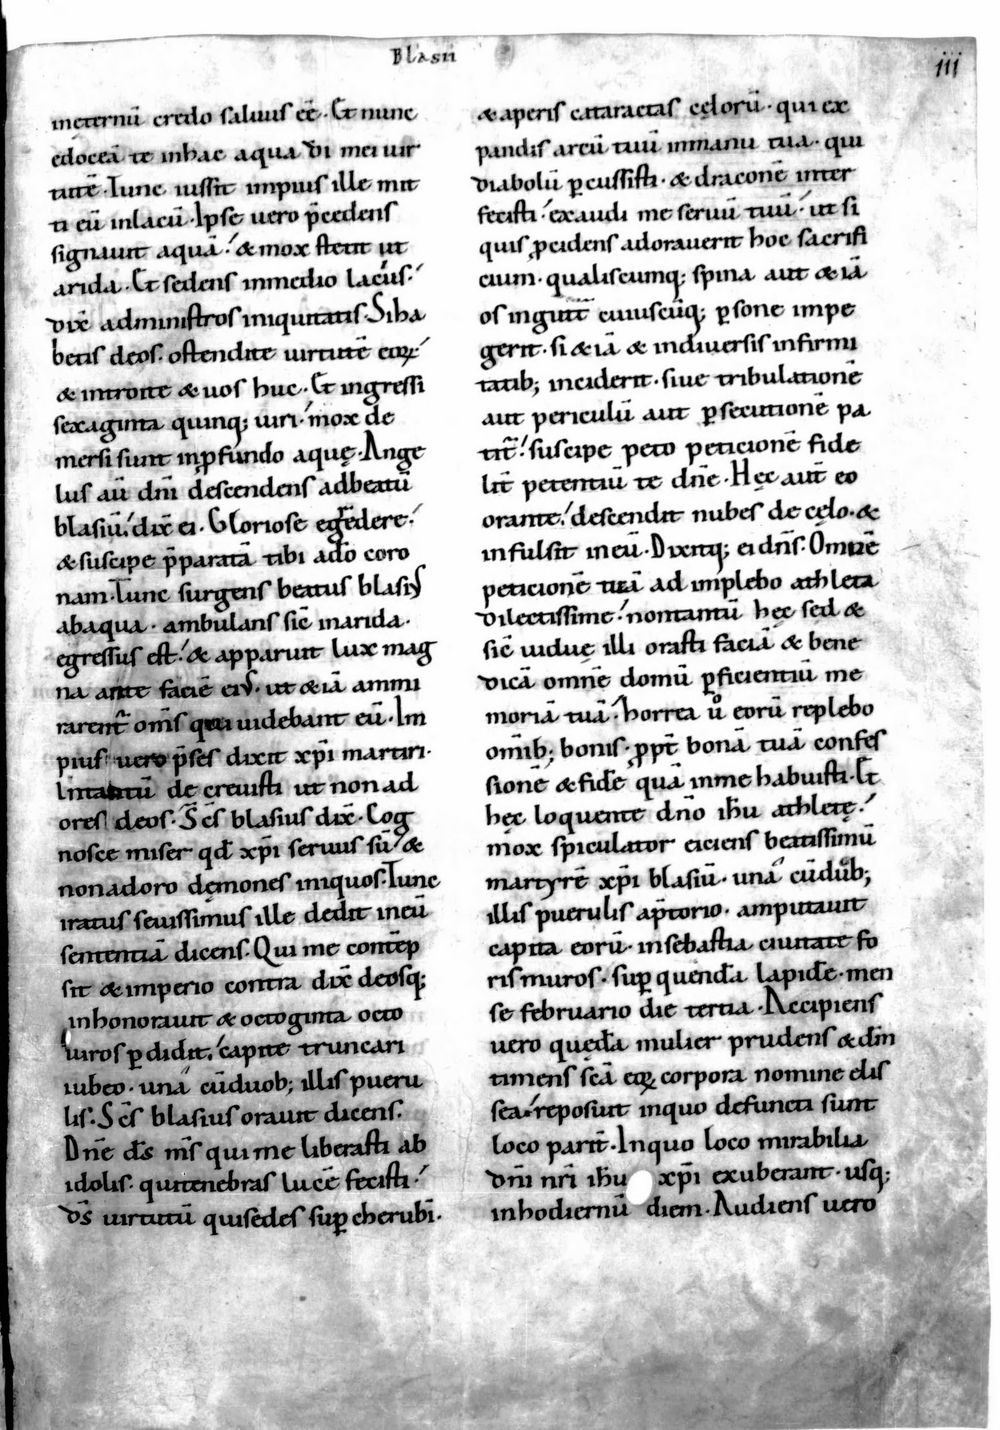 Blasii
iii
inęternū credo saluus eē. Et nunc
edoceā te inhac aqua di mei uir
tutē. Tunc iussit impius ille mit
ti eū inlacū. Ipse uero p̄cedens
signauit aquā. & mox stetit ut
arida. Et sedens inmedio lacus.
dix̄ administros iniquitatis. Siha
betis deos. ostendite uirtutē eoꝝ
& introite & uos huc. Et ingressi
sexaginta quinq; uiri. mox de
mersi sunt inꝓfundo aquę. Ange
lus aū dn̄i descendens adbeatū
blasiū. dix̄ ei. Gloriose egredere.
& suscipe p̄paratā tibi ado coro
nam. Tunc surgens beatus blasiꝰ
abaqua. ambulans sic̄ inarida.
egressus est. & apparuit lux mag
na ante faciē eiꝰ. ut & iā ammi
rarent̄ oms̄ qui uidebant eū. Im
pius uero p̄ses dixit xp̄i martiri.
Intantū de creuisti ut non ad
ores deos. Sc̄s blasius dix̄. Cog
nosce miser qđ xp̄i seruus sū. &
nonadoro dęmones iniquos. Tunc
iratus seuissimus ille dedit ineū
sententiā dicens. Qui me contēp
sit & imperio contra dix̄ deosq;
inhonorauit & octoginta octo
uiros ꝑdidit. capite truncari
iubeo. una cūduob; illis pueru
lis. Sc̄s blasius orauit dicens.
Dn̄e ds̄ ms̄ qui me liberasti ab
idolis. quitenebras lucē fecisti.
ds̄ uirtutū quisedes suꝑ cherubī.
& aperis cataractas cęlorū. qui ex
pandis arcū tuū inmanu tua. qui
diabolū ꝑcussisti. & draconē inter
fecisti. exaudi me seruū tuū. ut si
quis ꝓcidens adorauerit hoc sacrifi
cium. qualiscumq; spina aut & iā
os ingutt̄ cuiuscūq; ꝑsone impe
gerit. si & iā & indiuersis infirmi
tatib; inciderit. siue tribulationē
aut periculū aut ꝑsecutionē pa
tit̄. suscipe peto peticionē fide
lit̄ petentiū te dn̄e. Hęc aut̄ eo
orante. descendit nubes de cęlo. &
infulsit ineū. Dixitq; ei dn̄s. Omnē
peticionē tuā ad implebo athleta
dilectissime. nontantū hęc sed &
sic̄ uiduę illi orasti faciā & bene
dicā omnē domū ꝑficientiū me
moriā tuā. horrea u̇ eorū replebo
omīb; bonis. ꝓpt̄ bonā tuā confes
sionē & fidē quā inme habuisti. Et
hęc loquente dn̄o ihu̅ athletę.
mox spiculator eiciens beatissimū
martyrē xp̄i blasiū. una cūduob;
illis puerulis ap̄torio. amputauit
capita eorū. insebastia ciuitate fo
ris muros. suꝑ quendā lapidē. men
se februario die tertia. Accipiens
uero quędā mulier prudens & dm̄
timens sc̄a eoꝝ corpora nomine elis
sea. reposuit inquo defuncti sunt
loco parit̄. Inquo loco mirabilia
dn̄i nr̄i ihu̅ xp̄i exuberant. usq;
inhodiernū diem. Audiens uero